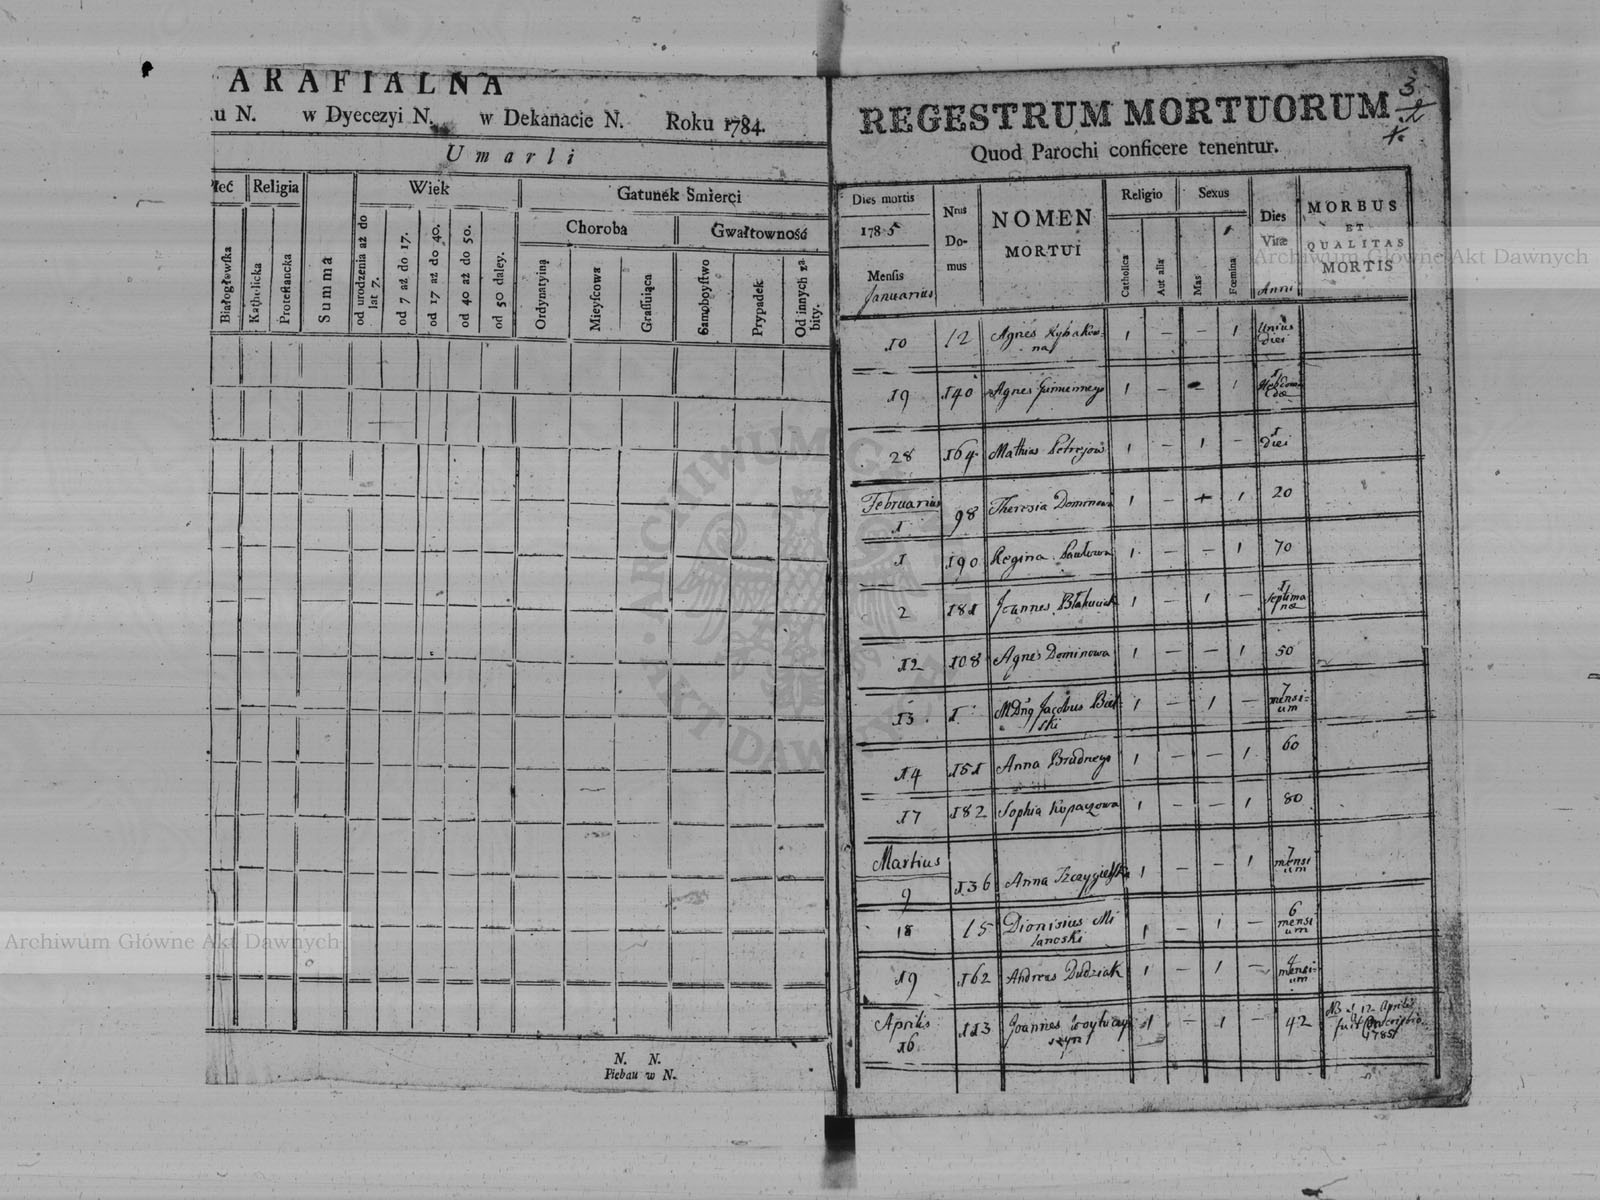 ARAFIALNA
u N. w Dyecezyi N. w Dekanacie N. Roku 1784.
Umarli
Płeć Religia Summa Wiek Gatunek Smierci
Choroba Gwałtowność
Białogłowska
Katholicka
Protestancka
od urodzenia aż do lat 7.
od 7 aż do 17.
od 17 aż do 40.
od 40 aż do 50.
od 50 daley.
Ordynatyiną
Mieyscowa
Grassuiąca
Samoboystwo
Przypadek
Od innych zabity.
N. N.
Pleban w N.
REGESTRUM MORTUORUM
3
Quod Parochi conficere tenentur.
Dies mortis
1785
Mensis
Januarius
Nrus Domus
NOMEN
MORTUI
Religio
Catholica
Aut alia
Sexus
Mas
Fœmina
Dies
Vitæ
Anni
MORBUS
ET
QUALITAS
MORTIS
10 12 Agnes Rybakow=
na 1 — — 1 Unius
diei
19 140 Agnes 1 — — 1 1
Hebdoma
dæ
28 164 Mathias Petrejow 1 — 1 — 1
diei
Februarius
1 98 Theresia Dominowa 1 — 1 20
1 190 Regina Pawłowa 1 — — 1 70
2 181 Joannes 1 — 1 — 11
septima
næ
12 108 Agnes Dominowa 1 — — 1 50
13 1 MDnq Jacobus Biel=
ski 1 — 1 — 7
mensi=
um
14 151 Anna Brudnego 1 — — 1 60
17 182 Sophia Kopaczowa 1 — — 1 80
Martius
9 136 Anna Szczygielska 1 — — 1 7
mensi
um
18 15 Dionisius Mi
lanoski 1 — 1 — 6
mensi
um
19 162 Andreas Dudziak 1 — 1 — 4
mensi=
um
Aprilis
16 113 Joannes 1 — 1 — 42 NB 12 Aprilis
fuit
1785
Archiwum Główne Akt Dawnych
Archiwum Główne Akt Dawnych
ARCHIWUM GŁÓWNE AKT DAWNYCH